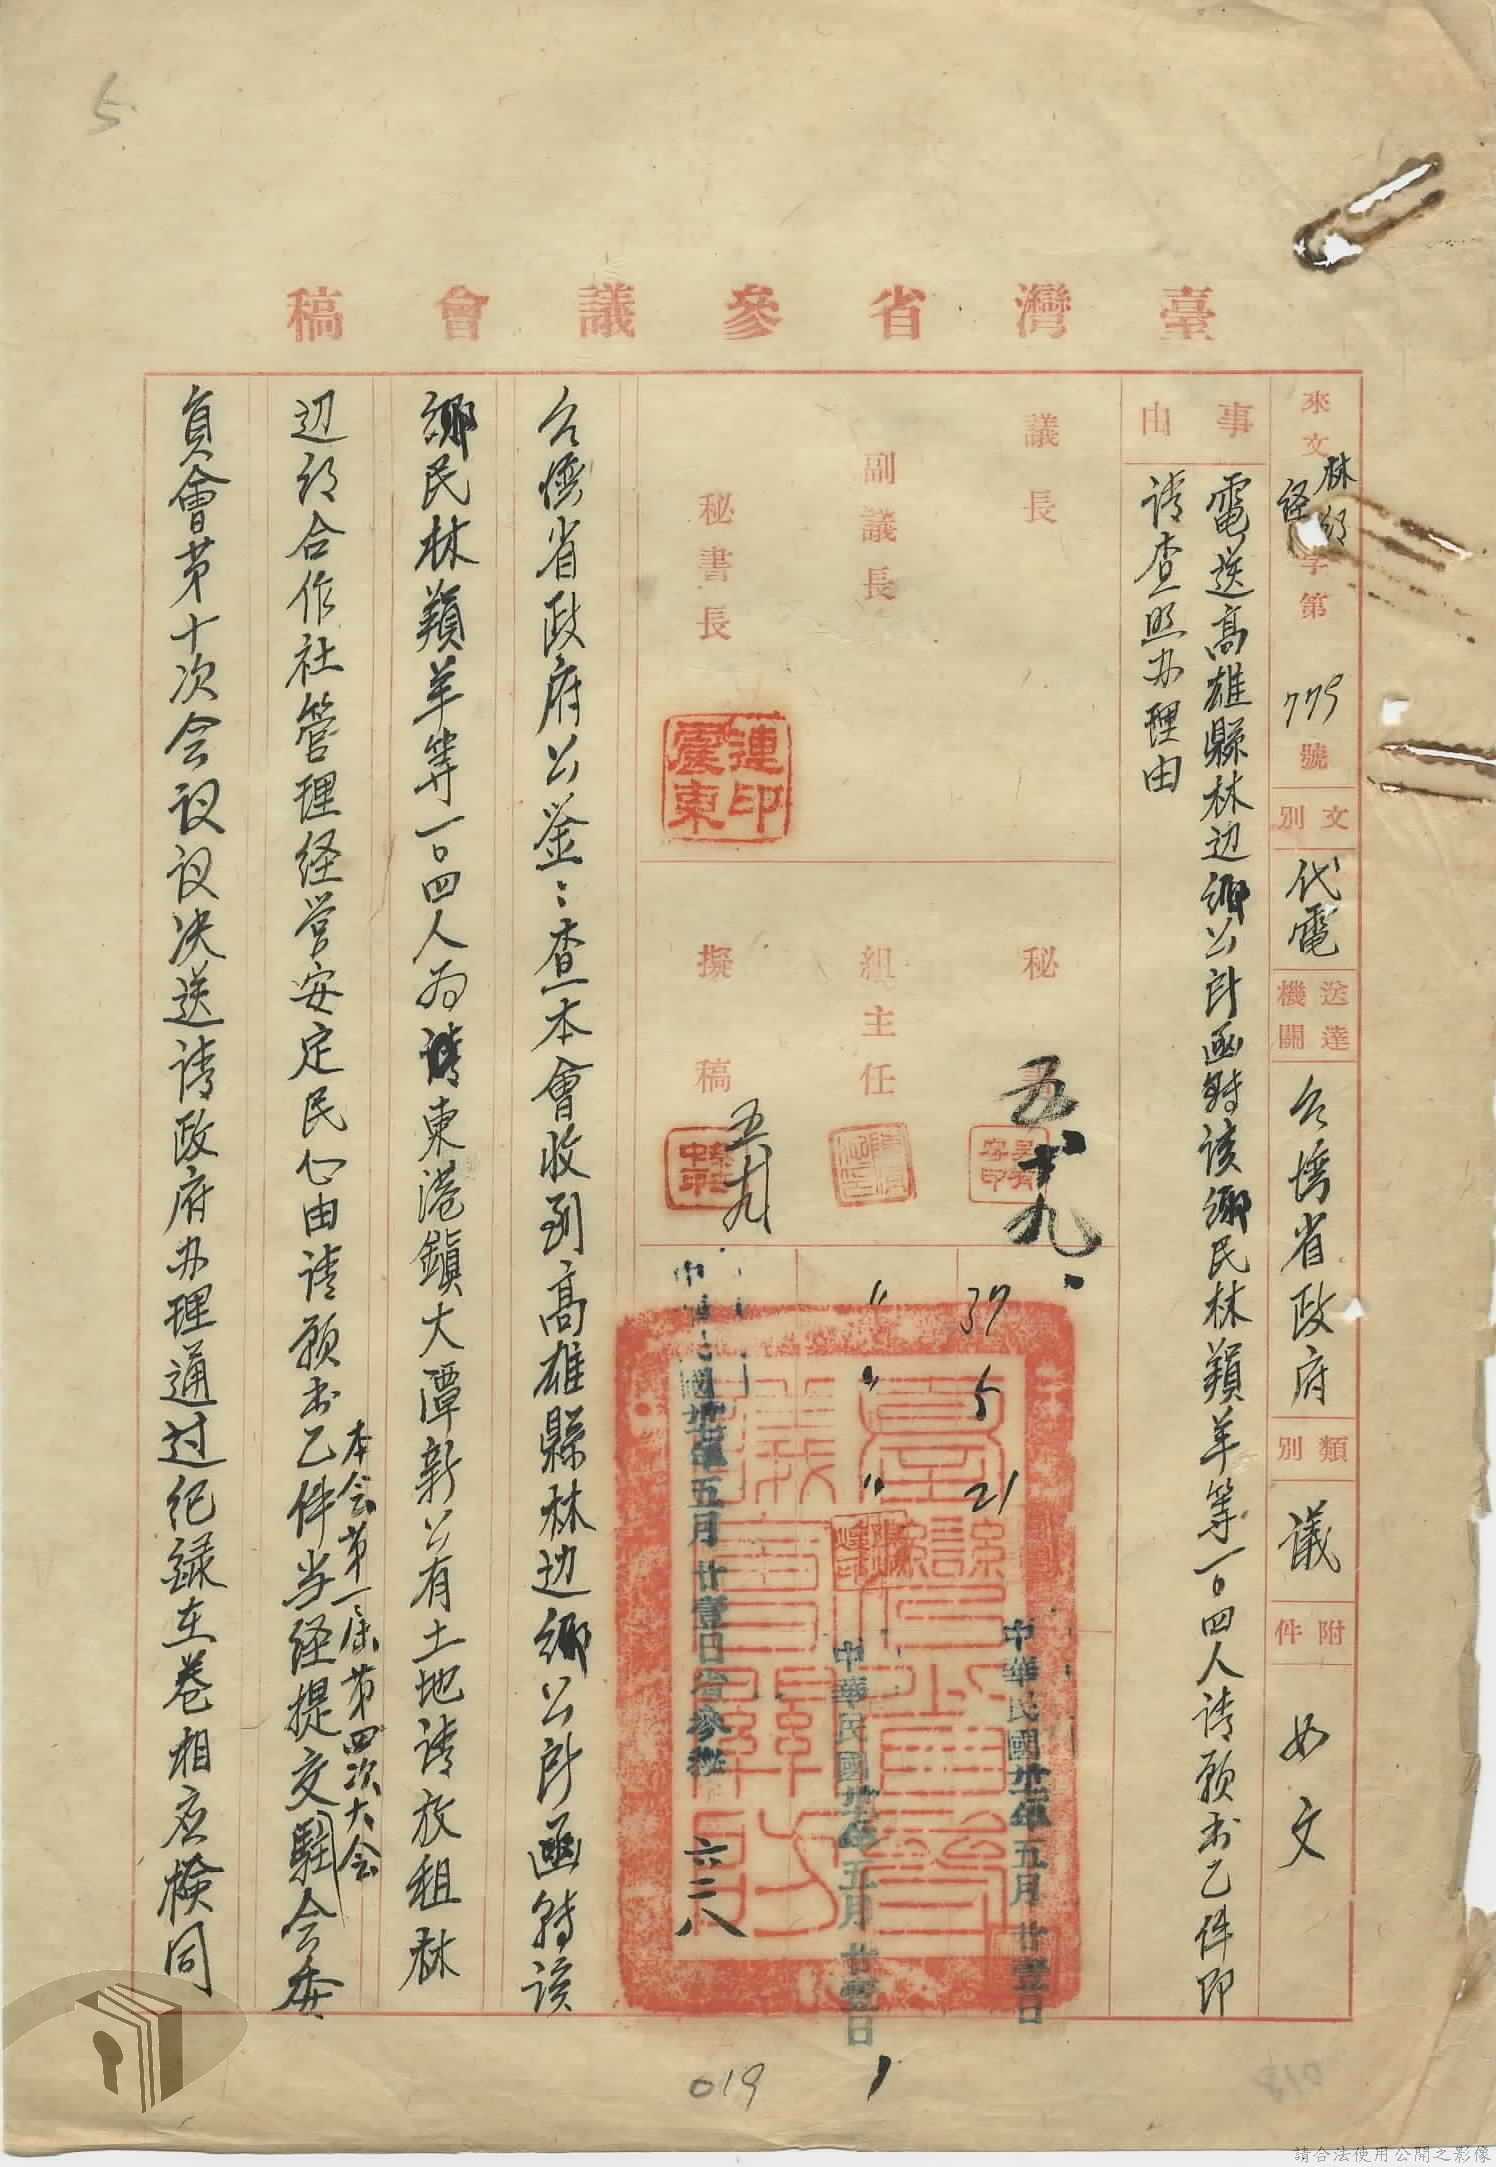 5
臺灣省參議會稿
來文 林邊經字第779號
文別 代電
送達機關 台湾省政府
類別 議
附件 如文
事由
電送高雄縣林边鄉公所函轉該鄉民林羊等一〇四人请願书乙件即
请查照办理由
議長
副議長
秘書長
連震東印
秘書
五十九.
組主任
擬稿
五十九
37 5 21
〃 〃 〃
中華民國卅七年五月廿壹日
中華民國卅七年五月廿壹日
中華民國卅七年五月廿壹日省參 六二八
台湾省政府公鉴:查本會收到高雄縣林边鄉公所函轉該
鄉民林羊等一〇四人为请東港鎮大潭新公有土地请放租林
边鄉合作社管理经营安定民心由请願书乙件当经提交駐会委
本会第一屆第四次大会
員會第十次会议议决送请政府办理通过纪录在卷相应檢同
019
1
018
請合法使用公開之影像